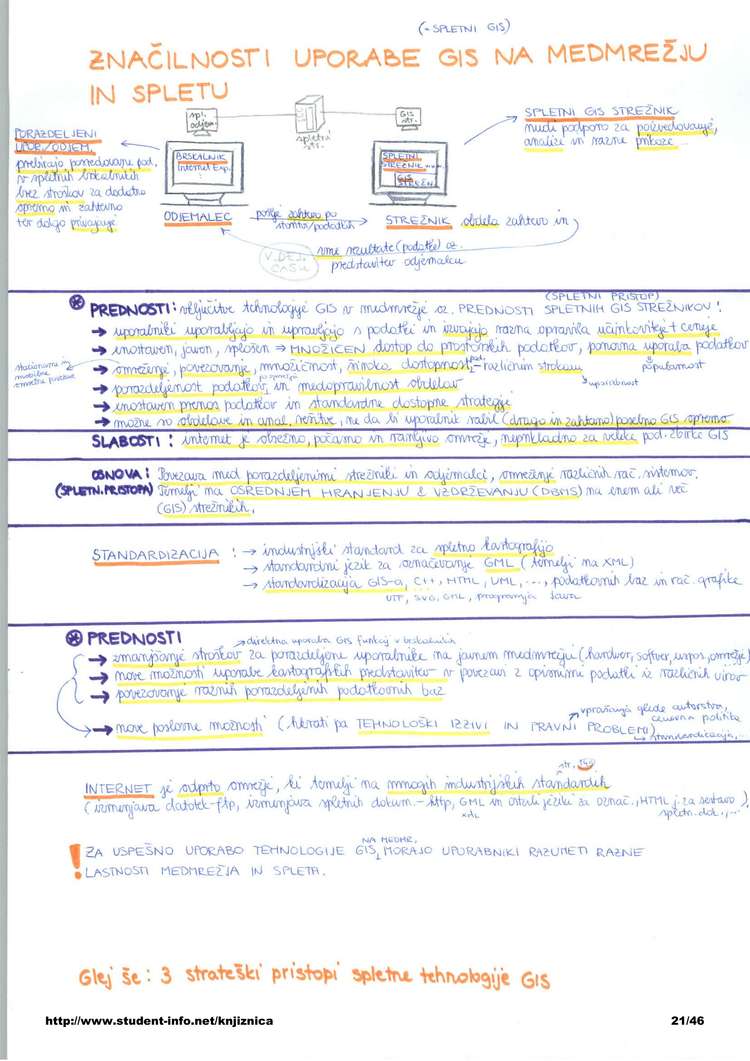 (→ SPLETNI GIS)
ZNAČILNOSTI UPORABE GIS NA MEDMREŽJU
IN SPLETU
spl. odjem.
spletni str.
GIS str.
PORAZDELJENI
UPOR./ODJEM.
prebirajo posredovane pod.
v spletnih brskalnikih
brez stroškov za dodatno
opremo in zahtevno
ter dolgo
BRSKALNIK
Internet Exp.
SPLETNI
STREŽNIK
GIS
STREŽN.
SPLETNI GIS STREŽNIK
nudi podporo za poizvedovanje,
analize in razne prikaze.
ODJEMALEC
pošlje zahtevo po
storitvi/podatkih
STREŽNIK obdela zahtevo in
V DEJ.
ČASU
vrne rezultate (podatke) oz.
predstavitev odjemalcu
(SPLETNI PRISTOP)
PREDNOSTI: vključitve tehnologije GIS v medmrežje oz. PREDNOSTI SPLETNIH GIS STREŽNIKOV!
→ uporabniki uporabljajo in upravljajo s podatki in izvajajo razna opravila učinkoviteje + ceneje
→ enostaven, javen, splošen ⇒ MNOŽIČEN dostop do prostorskih podatkov, ponovna uporaba podatkov
stacionarne in
mobilne
omrežne
→ omreženje, povezovanje, množičnost, široka dostopnost pod. – različnim strokam
popularnost
→ porazdeljenost podatkov, in medopravilnost obdelav
uporabnost
→ enostaven prenos podatkov in standardne dostopne strategije
→ možne so obdelave in anal. rešitve, ne da bi uporabnik rabil (drago in zahtevno) posebno GIS opremo
SLABOSTI: internet je obsežno, počasno in ranljivo omrežje, neprikladno za velike pod. zbirke GIS
OSNOVA: Povezava med porazdeljenimi strežniki in odjemalci, omreženje različnih rač. sistemov.
(SPLETN. PRISTOPA) Temelji na OSREDNJEM HRANJENJU & VZDRŽEVANJU (DBMS) na enem ali več
(GIS) strežnikih.
STANDARDIZACIJA : → industrijski standard za spletno kartografijo
→ standardni jezik za označevanje GML (temelji na XML)
→ standardizacija GIS-a, C++, HTML, UML, ..., podatkovnih baz in rač. grafike
SVG, GML, programja Java
PREDNOSTI → direktna uporaba GIS funkcij v brskalnikih
→ zmanjšanje stroškov za porazdeljene uporabnike na javnem medmrežju (hardver, softver, uspos., omrežje)
→ nove možnosti uporabe kartografskih predstavitev v povezavi z opisnimi podatki iz različnih virov
→ povezovanje raznih porazdeljenih podatkovnih baz
vprašanja glede avtorstva,
cenovna politika
→ nove poslovne možnosti (hkrati pa TEHNOLOŠKI IZZIVI IN PRAVNI PROBLEMI)
→ standardizacija, ...
str.
INTERNET je odprto omrežje, ki temelji na mnogih industrijskih standardih
(izmenjava datotek – ftp, izmenjava spletnih dokum. – http, GML in ostali jeziki za označ., HTML j. za sestavo)
xml
spletn. dok., ...
NA MEDMR.
! ZA USPEŠNO UPORABO TEHNOLOGIJE GIS MORAJO UPORABNIKI RAZUMETI RAZNE
LASTNOSTI MEDMREŽJA IN SPLETA.
Glej še: 3 strateški pristopi spletne tehnologije GIS
http://www.student-info.net/knjiznica
21/46